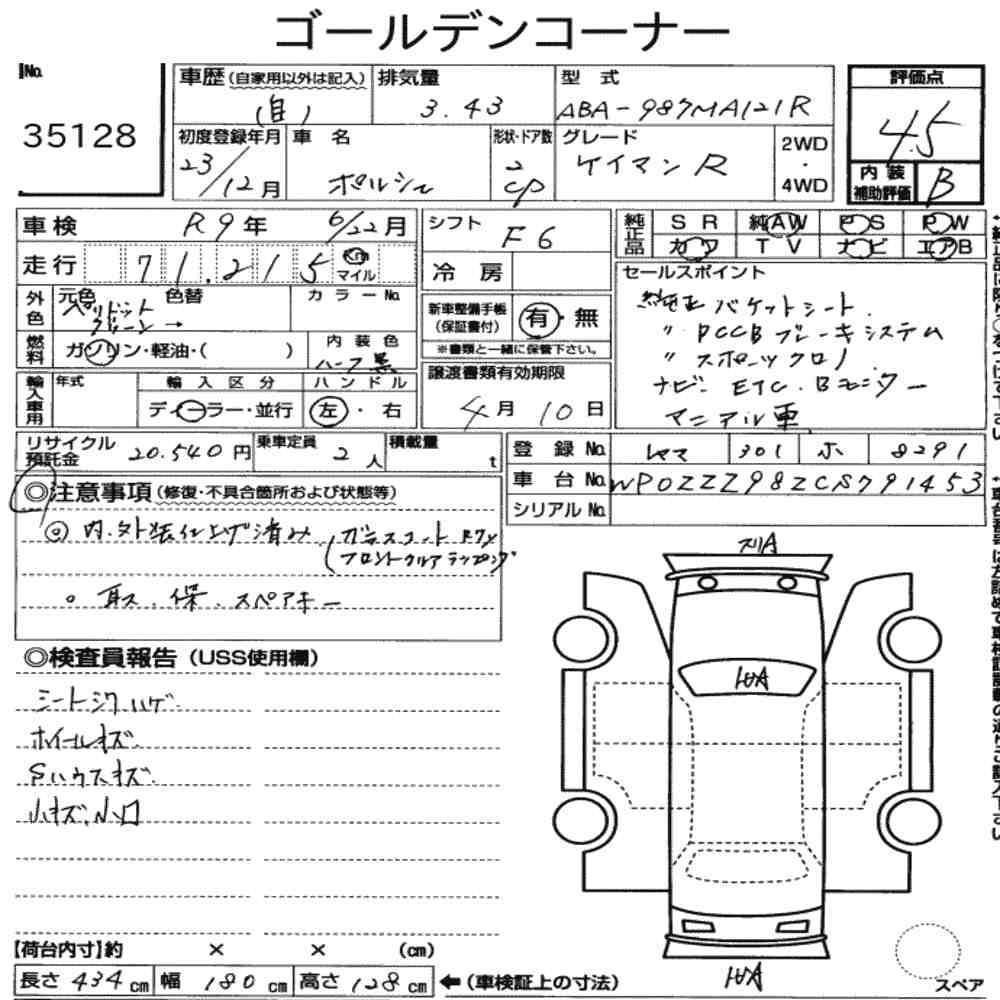 ゴールデンコーナー
No.
35128
車歴（自家用以外は記入）
（自）
排気量
3.43
型式
ABA-987MA121R
評価点
4.5
内装補助評価
B
初度登録年月
23/12月
車名
ポルシェ
形状・ドア数
2
CP
グレード
ケイマンR
2WD
・
4WD
車検
R9年 6/22月
走行
71.215
Km
マイル
外色
元色
色替
ペリドット
グリーン→
カラーNo.
燃料
ガソリン・軽油・( )
内装色
ハーフ黒
輸入車用
年式
輸入区分
ディーラー・並行
ハンドル
左・右
シフト
F6
冷房
新車整備手帳
（保証書付）
有・無
※書類と一緒に保管下さい。
譲渡書類有効期限
4月10日
純正品
SR 純AW PS PW
カワ TV ナビ エアB
セールスポイント
純正バケットシート.
〃 PCCBブレーキシステム
〃 スポーツクロノ
ナビ ETC.Bモニター
マニアル車
リサイクル預託金
20.540円
乗車定員
2人
積載量
t
登録No.
301 ホ 8291
車台No.
WP0ZZZ98ZCS791453
シリアルNo.
◎注意事項（修復・不具合箇所および状態等）
◎内.外装仕上げ済み（ガラスコート
フロントクルアラッピング
○取.保.スペアキー
◎検査員報告（USS使用欄）
シートシワハゲ
ホイールキズ
Sハウスキズ
小キズ.小凹
スリA
トビA
トビA
スペア
【荷台内寸】約 × × (cm)
長さ434cm 幅180cm 高さ128cm ←（車検証上の寸法）